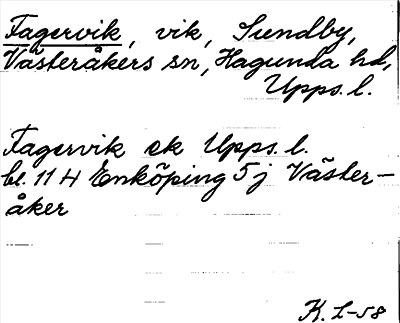 Fagervik, vik, Sundby,
Västeråkers sn, Hagunda hd,
Upps. l.
Fagervik ek Upps. l.
bl. 11 H Enköping 5 j Väster-
åker
K. L-58